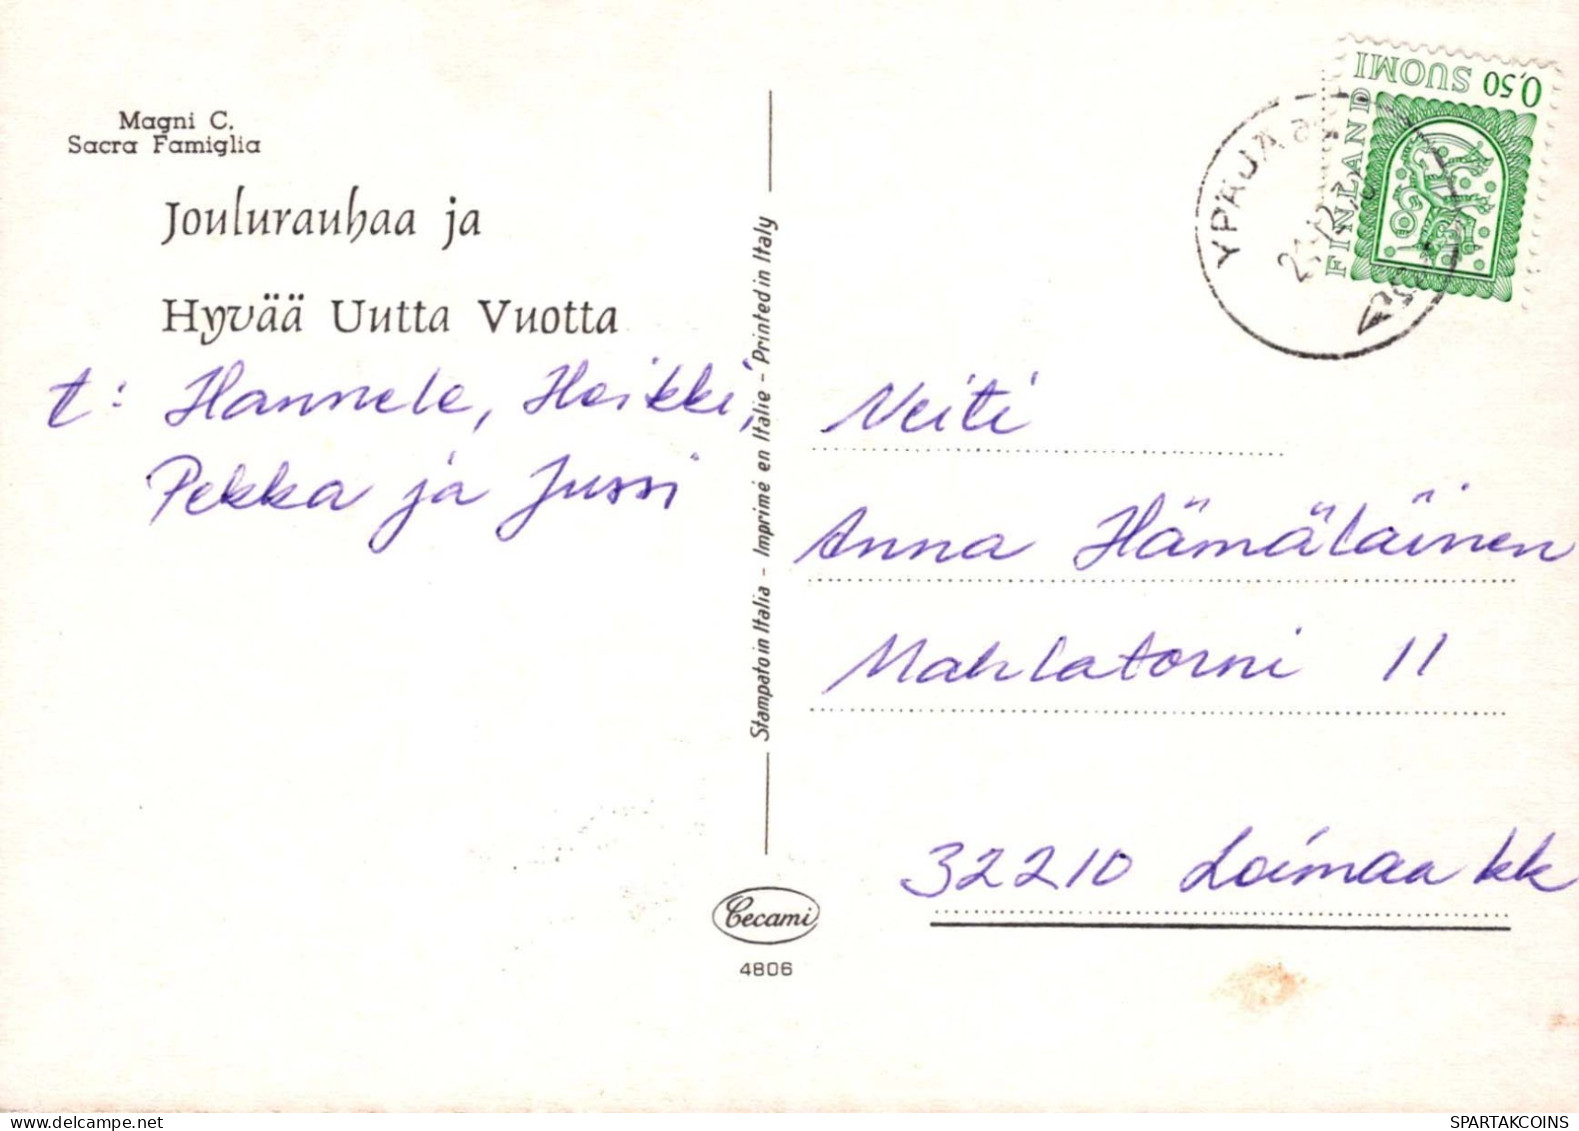 Magni C.
Sacra Famiglia
Joulurauhaa ja
Hyvää Uutta Vuotta
t: Hannele, Heikki,
Pekka ja Jussi
Stampato in Italia - Imprimé en Italie - Printed in Italy
Cecami
4806
0,50 SUOMI
FINLAND
YPÄJÄ
Neiti
Anna Hämäläinen
Mahlatorni 11
32210 Loimaa kk
SPARTAKCOINS